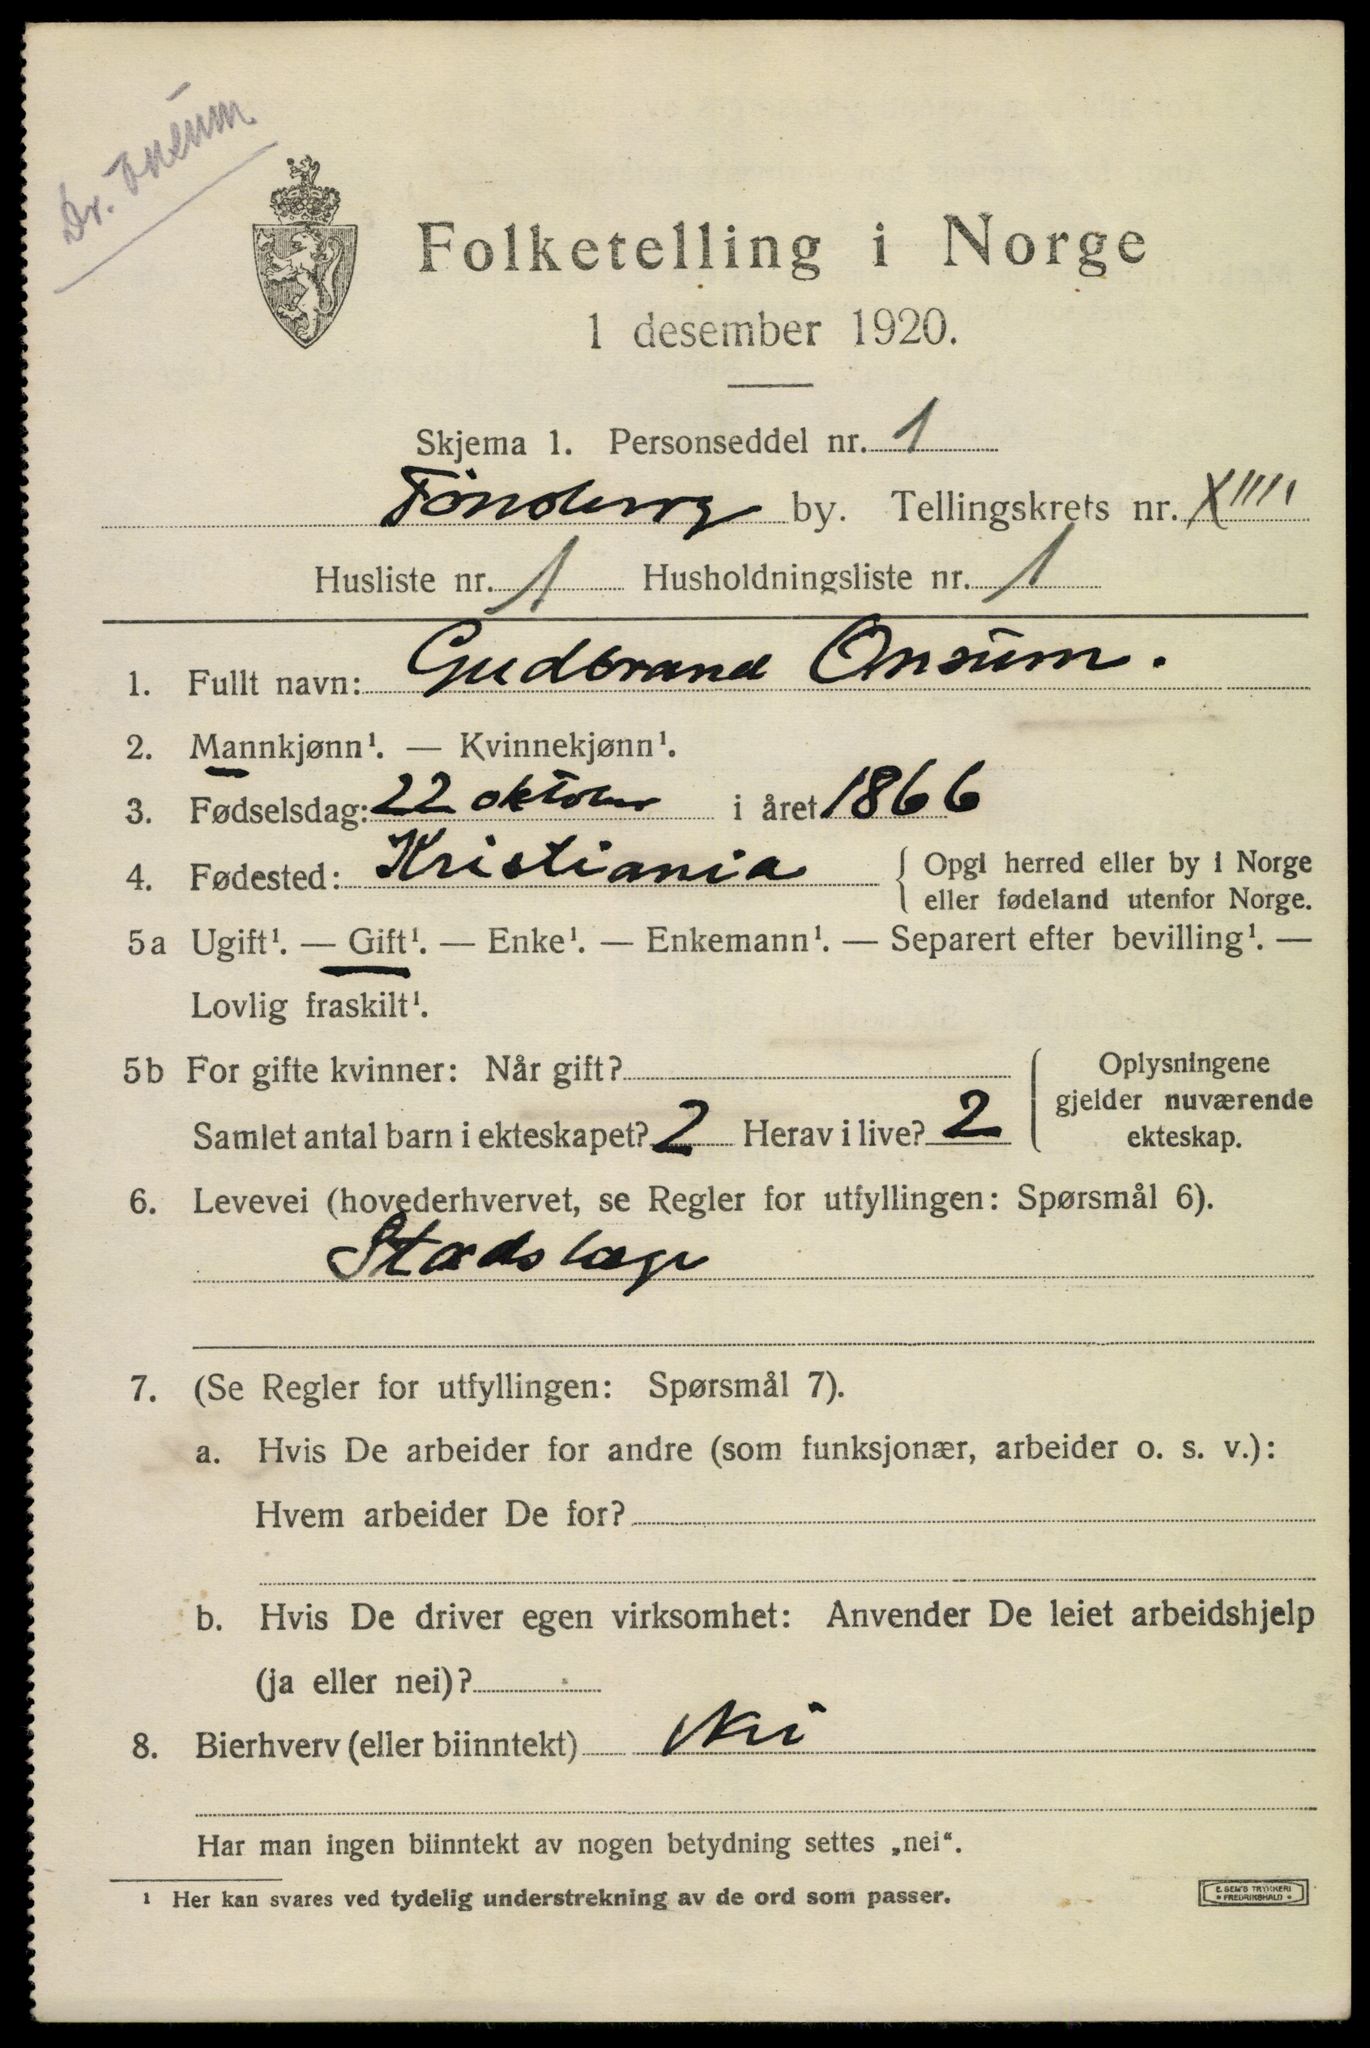 Dr. Onsum
Folketelling i Norge
1 desember 1920.
Skjema 1. Personseddel nr. 1
Tønsberg by. Tellingskrets nr. XIIII
Husliste nr. 1 Husholdningsliste nr. 1
1. Fullt navn: Gudbrand Onsum.
2. Mannkjønn¹. — Kvinnekjønn¹.
3. Fødselsdag: 22 oktober i året 1866
4. Fødested: Kristiania { Opgi herred eller by i Norge
eller fødeland utenfor Norge.
5a Ugift¹. — Gift¹. — Enke¹. — Enkemann¹. — Separert efter bevilling¹. —
Lovlig fraskilt¹.
5b For gifte kvinner: Når gift?
Samlet antal barn i ekteskapet? 2 Herav i live? 2
Oplysningene
gjelder nuværende
ekteskap.
6. Levevei (hovederhvervet, se Regler for utfyllingen: Spørsmål 6).
Stadslæge
7. (Se Regler for utfyllingen: Spørsmål 7).
a. Hvis De arbeider for andre (som funksjonær, arbeider o. s. v.):
Hvem arbeider De for?
b. Hvis De driver egen virksomhet: Anvender De leiet arbeidshjelp
(ja eller nei)?
8. Bierhverv (eller biinntekt) Nei
Har man ingen biinntekt av nogen betydning settes „nei“.
¹ Her kan svares ved tydelig understrekning av de ord som passer.
E. SEM'S TRYKKERI
• FREDRIKSHALD •